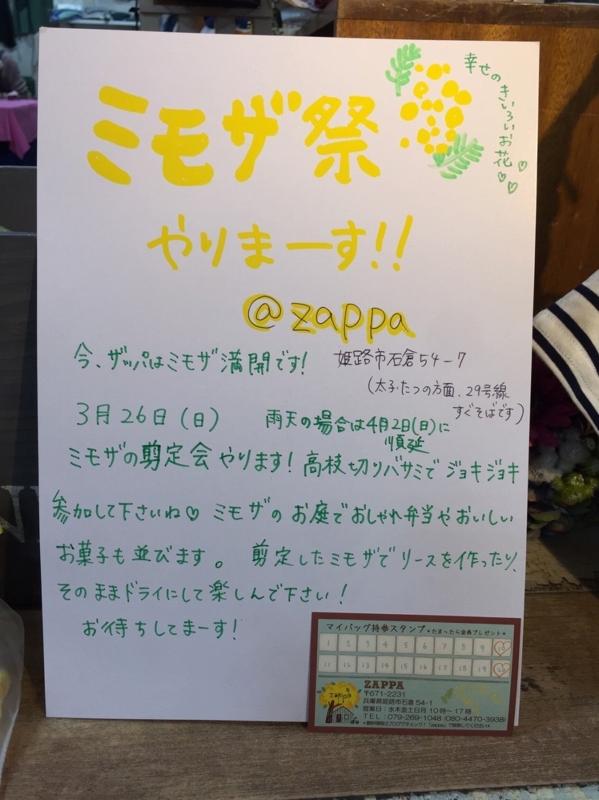 ミモザ祭
幸せの
きいろいお花♡♡♡
やりまーす!!
@zappa
今、ザッパはミモザ満開です!
姫路市石倉54-7
(太子・たつの方面、29号線
すぐそばです)
3月26日(日)
雨天の場合は4月2日(日)に
順延
ミモザの剪定会やります!高枝切りバサミでジョキジョキ
参加して下さいね♡ ミモザのお庭でおしゃれ弁当やおいしい
お菓子も並びます。 剪定したミモザでリースを作ったり、
そのままドライにして楽しんで下さい!
お待ちしてまーす!
マイバッグ持参スタンプ *たまったら全員プレゼント*
1 2 3 4 5 6 7 8 9 10
11 12 13 14 15 16 17 18 19 20
ZAPPA
〒671-2231
兵庫県姫路市石倉54-1
営業日:水木金土日月 10時~17時
TEL:079-269-1048 (080-4470-3938)